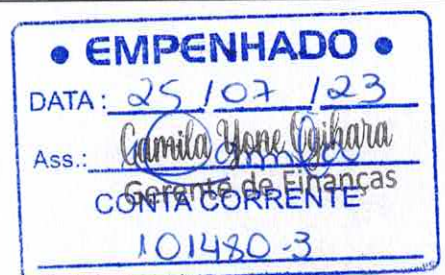 • EMPENHADO •
DATA: 25 / 07 / 23
Camila Yone Ogihara
Ass.: Camila
Gerente de Finanças
CONTA CORRENTE
101480-3